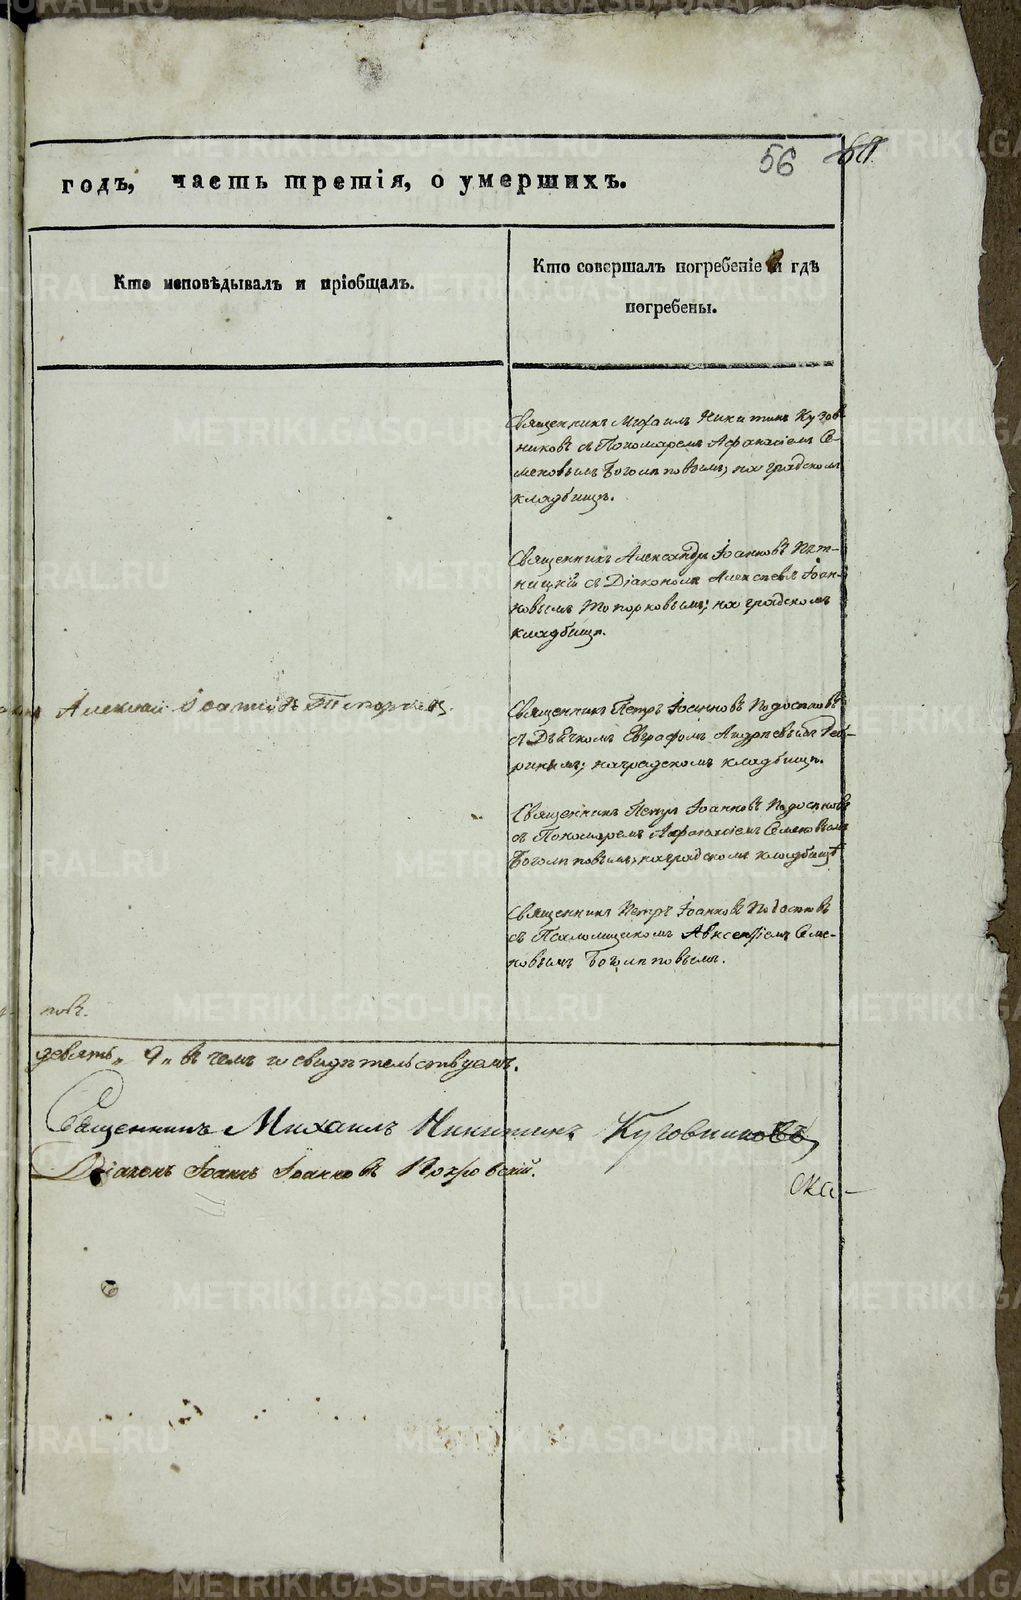 56
годъ, часть третія, о умершихъ.
Кто исповѣдывалъ и пріобщалъ.
Кто совершалъ погребеніе и гдѣ
погребены.
Священникъ Михаилъ Никитинъ Кузов
никовъ съ Пономаремъ Афанасіемъ Се-
меновымъ Боголеповымъ, на градскомъ
кладбищѣ.
Священникъ Александръ Іоанновъ Пят-
ницкій съ Діакономъ Алексеемъ Іоан-
новымъ Топорковымъ; на градскомъ
кладбищѣ.
Алексѣй Іоанновъ Топорковъ
Священникъ Петръ Іоанновъ Подосеновъ
съ Дьячкомъ Евграфомъ Андреевымъ
на градскомъ кладбищѣ.
Священникъ Петръ Іоанновъ Подосеновъ
съ Пономаремъ Афанасіемъ Семеновымъ
Боголеповымъ, на градскомъ кладбищѣ
Священникъ Петръ Іоанновъ Подосеновъ
съ Псаломщикомъ Авксентіемъ Семе-
новымъ Боголеповымъ.
повъ.
девять „ 9 „ въ чемъ и свидѣтельствуемъ.
Священникъ Михаилъ Никитинъ Кузовниковъ
Діаконъ Іоаннъ Іоанновъ Покровскій.
Ска-
METRIKI.GASO-URAL.RU